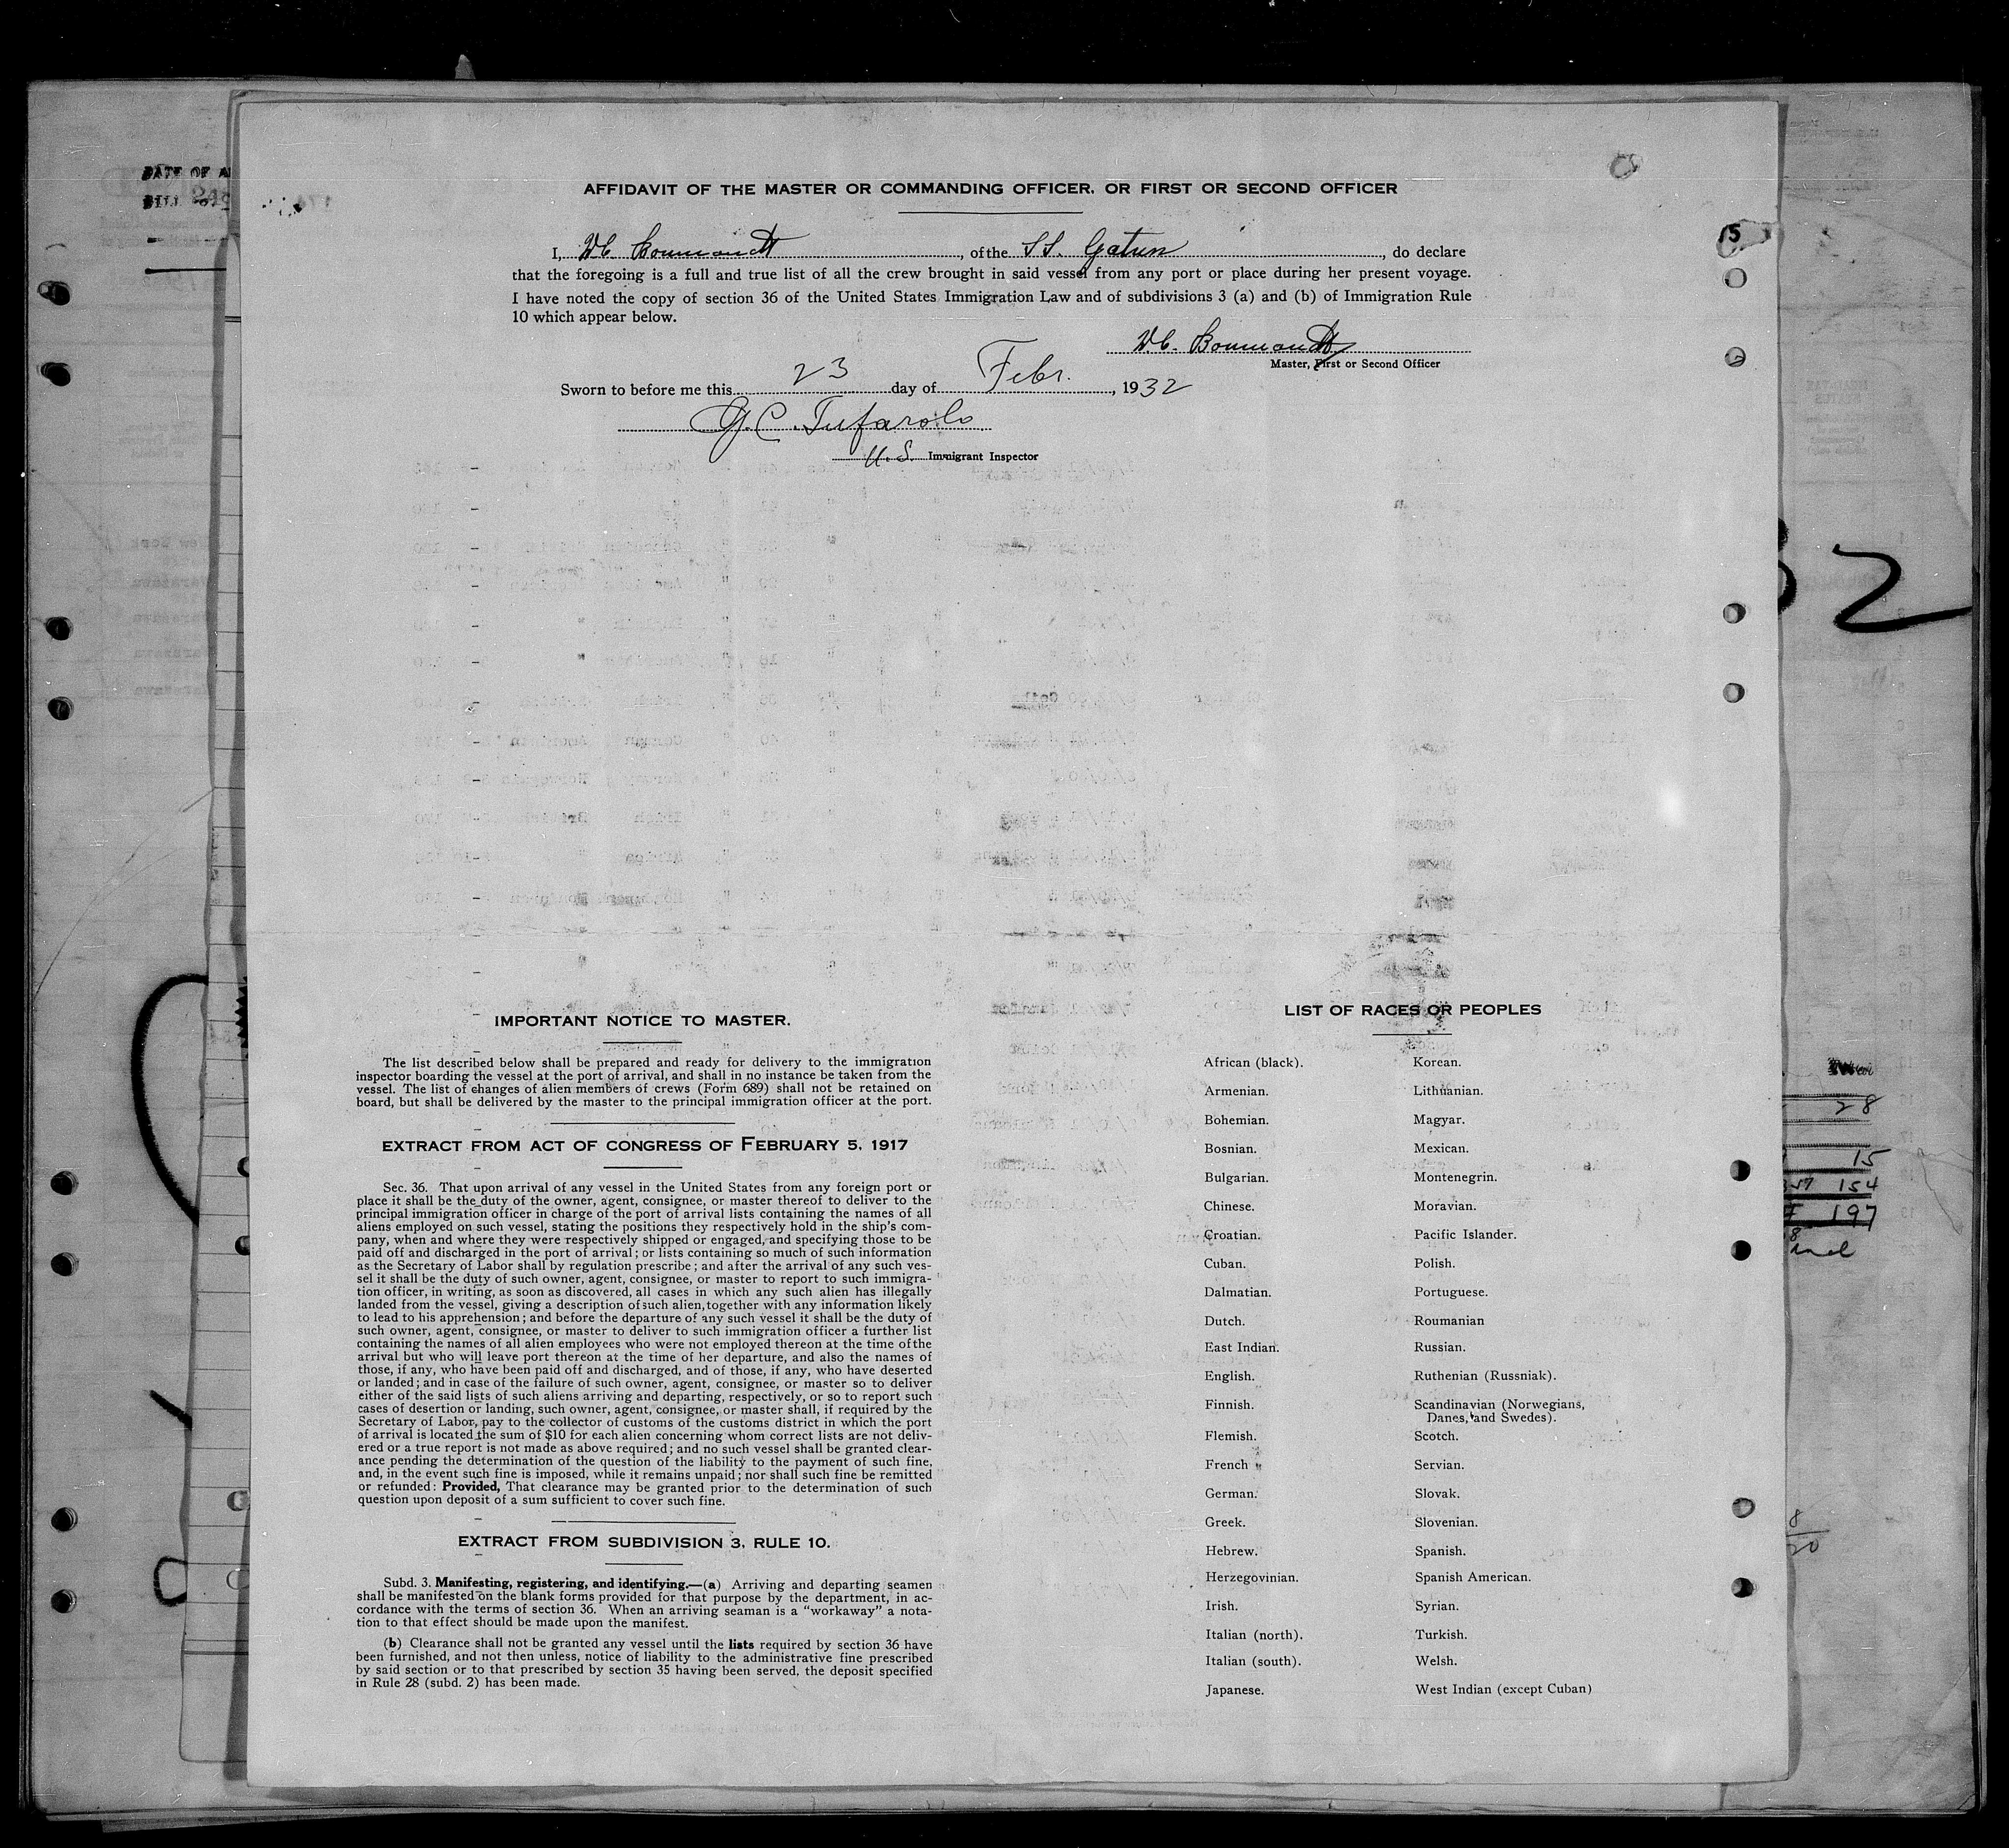 AFFIDAVIT OF THE MASTER OR COMMANDING OFFICER, OR FIRST OR SECOND OFFICER
I, of the SS. Gatun, do declare
that the foregoing is a full and true list of all the crew brought in said vessel from any port or place during her present voyage.
I have noted the copy of section 36 of the United States Immigration Law and of subdivisions 3 (a) and (b) of Immigration Rule
10 which appear below.
Master, First or Second Officer
Sworn to before me this 23 day of Febr., 1932
G.C. Tufarolo
U.S. Immigrant Inspector
15
DATE OF
32
28
15
154
197
8
20
IMPORTANT NOTICE TO MASTER.
The list described below shall be prepared and ready for delivery to the immigration
inspector boarding the vessel at the port of arrival, and shall in no instance be taken from the
vessel. The list of changes of alien members of crews (Form 689) shall not be retained on
board, but shall be delivered by the master to the principal immigration officer at the port.
EXTRACT FROM ACT OF CONGRESS OF FEBRUARY 5, 1917
Sec. 36. That upon arrival of any vessel in the United States from any foreign port or
place it shall be the duty of the owner, agent, consignee, or master thereof to deliver to the
principal immigration officer in charge of the port of arrival lists containing the names of all
aliens employed on such vessel, stating the positions they respectively hold in the ship's com-
pany, when and where they were respectively shipped or engaged, and specifying those to be
paid off and discharged in the port of arrival; or lists containing so much of such information
as the Secretary of Labor shall by regulation prescribe; and after the arrival of any such ves-
sel it shall be the duty of such owner, agent, consignee, or master to report to such immigra-
tion officer, in writing, as soon as discovered, all cases in which any such alien has illegally
landed from the vessel, giving a description of such alien, together with any information likely
to lead to his apprehension; and before the departure of any such vessel it shall be the duty of
such owner, agent, consignee, or master to deliver to such immigration officer a further list
containing the names of all alien employees who were not employed thereon at the time of the
arrival but who will leave port thereon at the time of her departure, and also the names of
those, if any, who have been paid off and discharged, and of those, if any, who have deserted
or landed; and in case of the failure of such owner, agent, consignee, or master so to deliver
either of the said lists of such aliens arriving and departing, respectively, or so to report such
cases of desertion or landing, such owner, agent, consignee, or master shall, if required by the
Secretary of Labor, pay to the collector of customs of the customs district in which the port
of arrival is located the sum of $10 for each alien concerning whom correct lists are not deliv-
ered or a true report is not made as above required; and no such vessel shall be granted clear-
ance pending the determination of the question of the liability to the payment of such fine,
and, in the event such fine is imposed, while it remains unpaid; nor shall such fine be remitted
or refunded: Provided, That clearance may be granted prior to the determination of such
question upon deposit of a sum sufficient to cover such fine.
EXTRACT FROM SUBDIVISION 3, RULE 10.
Subd. 3. Manifesting, registering, and identifying.—(a) Arriving and departing seamen
shall be manifested on the blank forms provided for that purpose by the department, in ac-
cordance with the terms of section 36. When an arriving seaman is a "workaway" a nota-
tion to that effect should be made upon the manifest.
(b) Clearance shall not be granted any vessel until the lists required by section 36 have
been furnished, and not then unless, notice of liability to the administrative fine prescribed
by said section or to that prescribed by section 35 having been served, the deposit specified
in Rule 28 (subd. 2) has been made.
LIST OF RACES OR PEOPLES
African (black). Korean.
Armenian. Lithuanian.
Bohemian. Magyar.
Bosnian. Mexican.
Bulgarian. Montenegrin.
Chinese. Moravian.
Croatian. Pacific Islander.
Cuban. Polish.
Dalmatian. Portuguese.
Dutch. Roumanian
East Indian. Russian.
English. Ruthenian (Russniak).
Finnish. Scandinavian (Norwegians,
Danes, and Swedes).
Flemish. Scotch.
French Servian.
German. Slovak.
Greek. Slovenian.
Hebrew. Spanish.
Herzegovinian. Spanish American.
Irish. Syrian.
Italian (north). Turkish.
Italian (south). Welsh.
Japanese. West Indian (except Cuban)